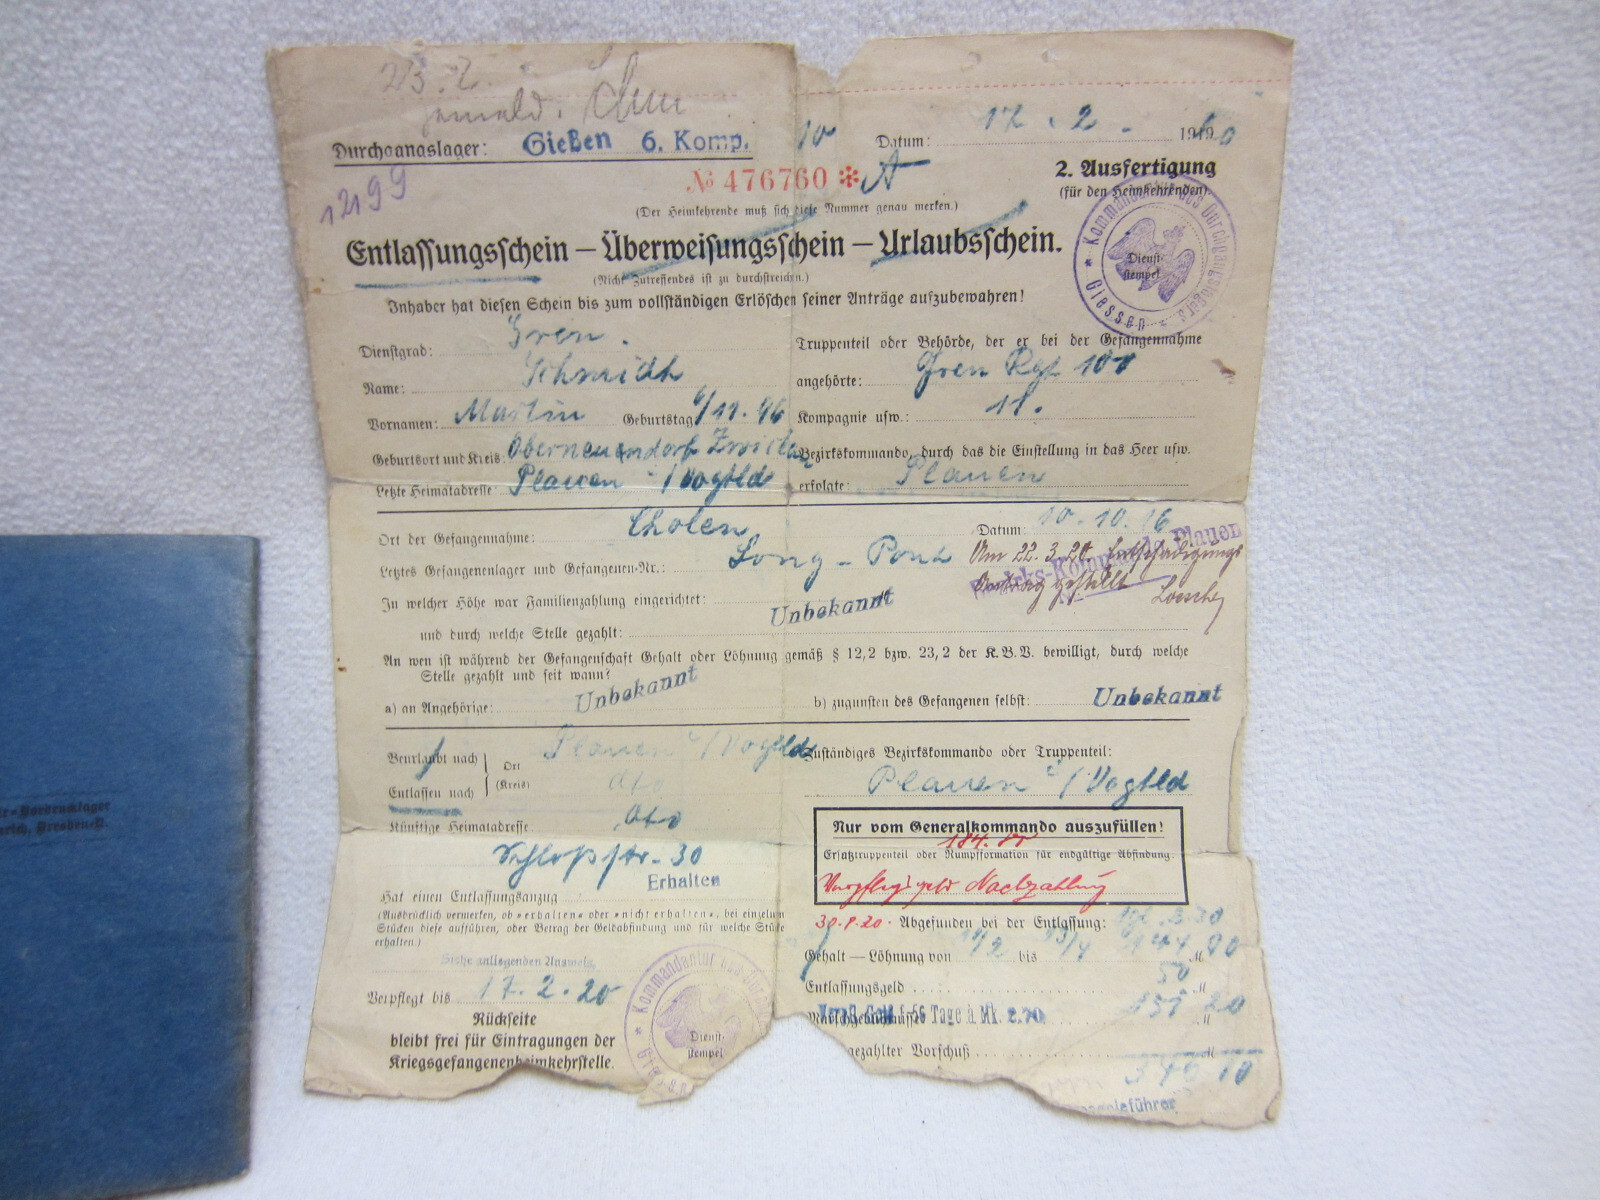 Durchgangslager: Gießen 6. Komp. 10 Datum: 17. 2. 1919. 20
№ 476760 * A
12199
2. Ausfertigung
(für den Heimkehrenden).
(Der Heimkehrende muß sich diese Nummer genau merken.)
Entlassungsschein – Überweisungsschein – Urlaubsschein.
(Nicht Zutreffendes ist zu durchstreichen.)
Kommandantur des Durchgangslagers * Giessen *
Dienst-
stempel
Inhaber hat diesen Schein bis zum vollständigen Erlöschen seiner Anträge aufzubewahren!
Dienstgrad: Gren.
Name: Schmidt
Vornamen: Martin Geburtstag 6/11. 96
Geburtsort und Kreis: Oberneumdorf Zwickau
Letzte Heimatadresse: Plauen i/Vogtld
Truppenteil oder Behörde, der er bei der Gefangennahme
angehörte: Gren Rgt 100
Kompagnie usw.: 11.
Bezirkskommando, durch das die Einstellung in das Heer usw.
erfolgte: Plauen
Ort der Gefangennahme: Cholen Datum: 10. 10. 16
Letztes Gefangenenlager und Gefangenen-Nr.: Long-Pont
Bezirks-Kommando Plauen
Am 22. 3. 20 Entschädigungs
Antrag gestellt
In welcher Höhe war Familienzahlung eingerichtet: Unbekannt
und durch welche Stelle gezahlt:
An wen ist während der Gefangenschaft Gehalt oder Löhnung gemäß § 12,2 bzw. 23,2 der K.B.V. bewilligt, durch welche
Stelle gezahlt und seit wann?
a) an Angehörige: Unbekannt b) zugunsten des Gefangenen selbst: Unbekannt
Beurlaubt nach Ort Plauen i/Vogtld
Entlassen nach (Kreis) dto
Künftige Heimatadresse dto
Schloßstr. 30
Zuständiges Bezirkskommando oder Truppenteil:
Plauen i/Vogtld
Nur vom Generalkommando auszufüllen!
Ersatztruppenteil oder Rumpfformation für endgültige Abfindung:
Verpflegsgeld Nachzahlung
Erhalten
Hat einen Entlassungsanzug
(Ausdrücklich vermerken, ob »erhalten« oder »nicht erhalten«, bei einzelnen
Stücken diese aufführen, oder Betrag der Geldabfindung und für welche Stücke
erhalten.)
Siehe anliegenden Ausweis.
Verpflegt bis 17. 2. 20
Rückseite
bleibt frei für Eintragungen der
Kriegsgefangenenheimkehrstelle.
Kommandantur des Durch
Dienst-
stempel
Abgefunden bei der Entlassung:
Gehalt – Löhnung von 19/2 bis 13/4 M
Entlassungsgeld 50 M
Verpfl. Geld f. 56 Tage à Mk. 2.70 M
gezahlter Vorschuß M